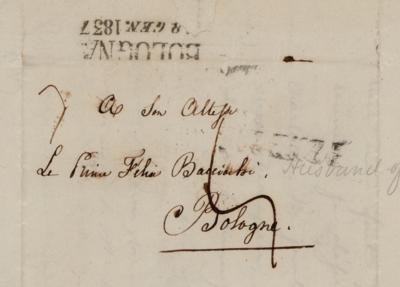 BOLOGNA
GEN. 1837
A Son Altesse
Le Prince Felix Bacciochi,
Husband of
Bologne.